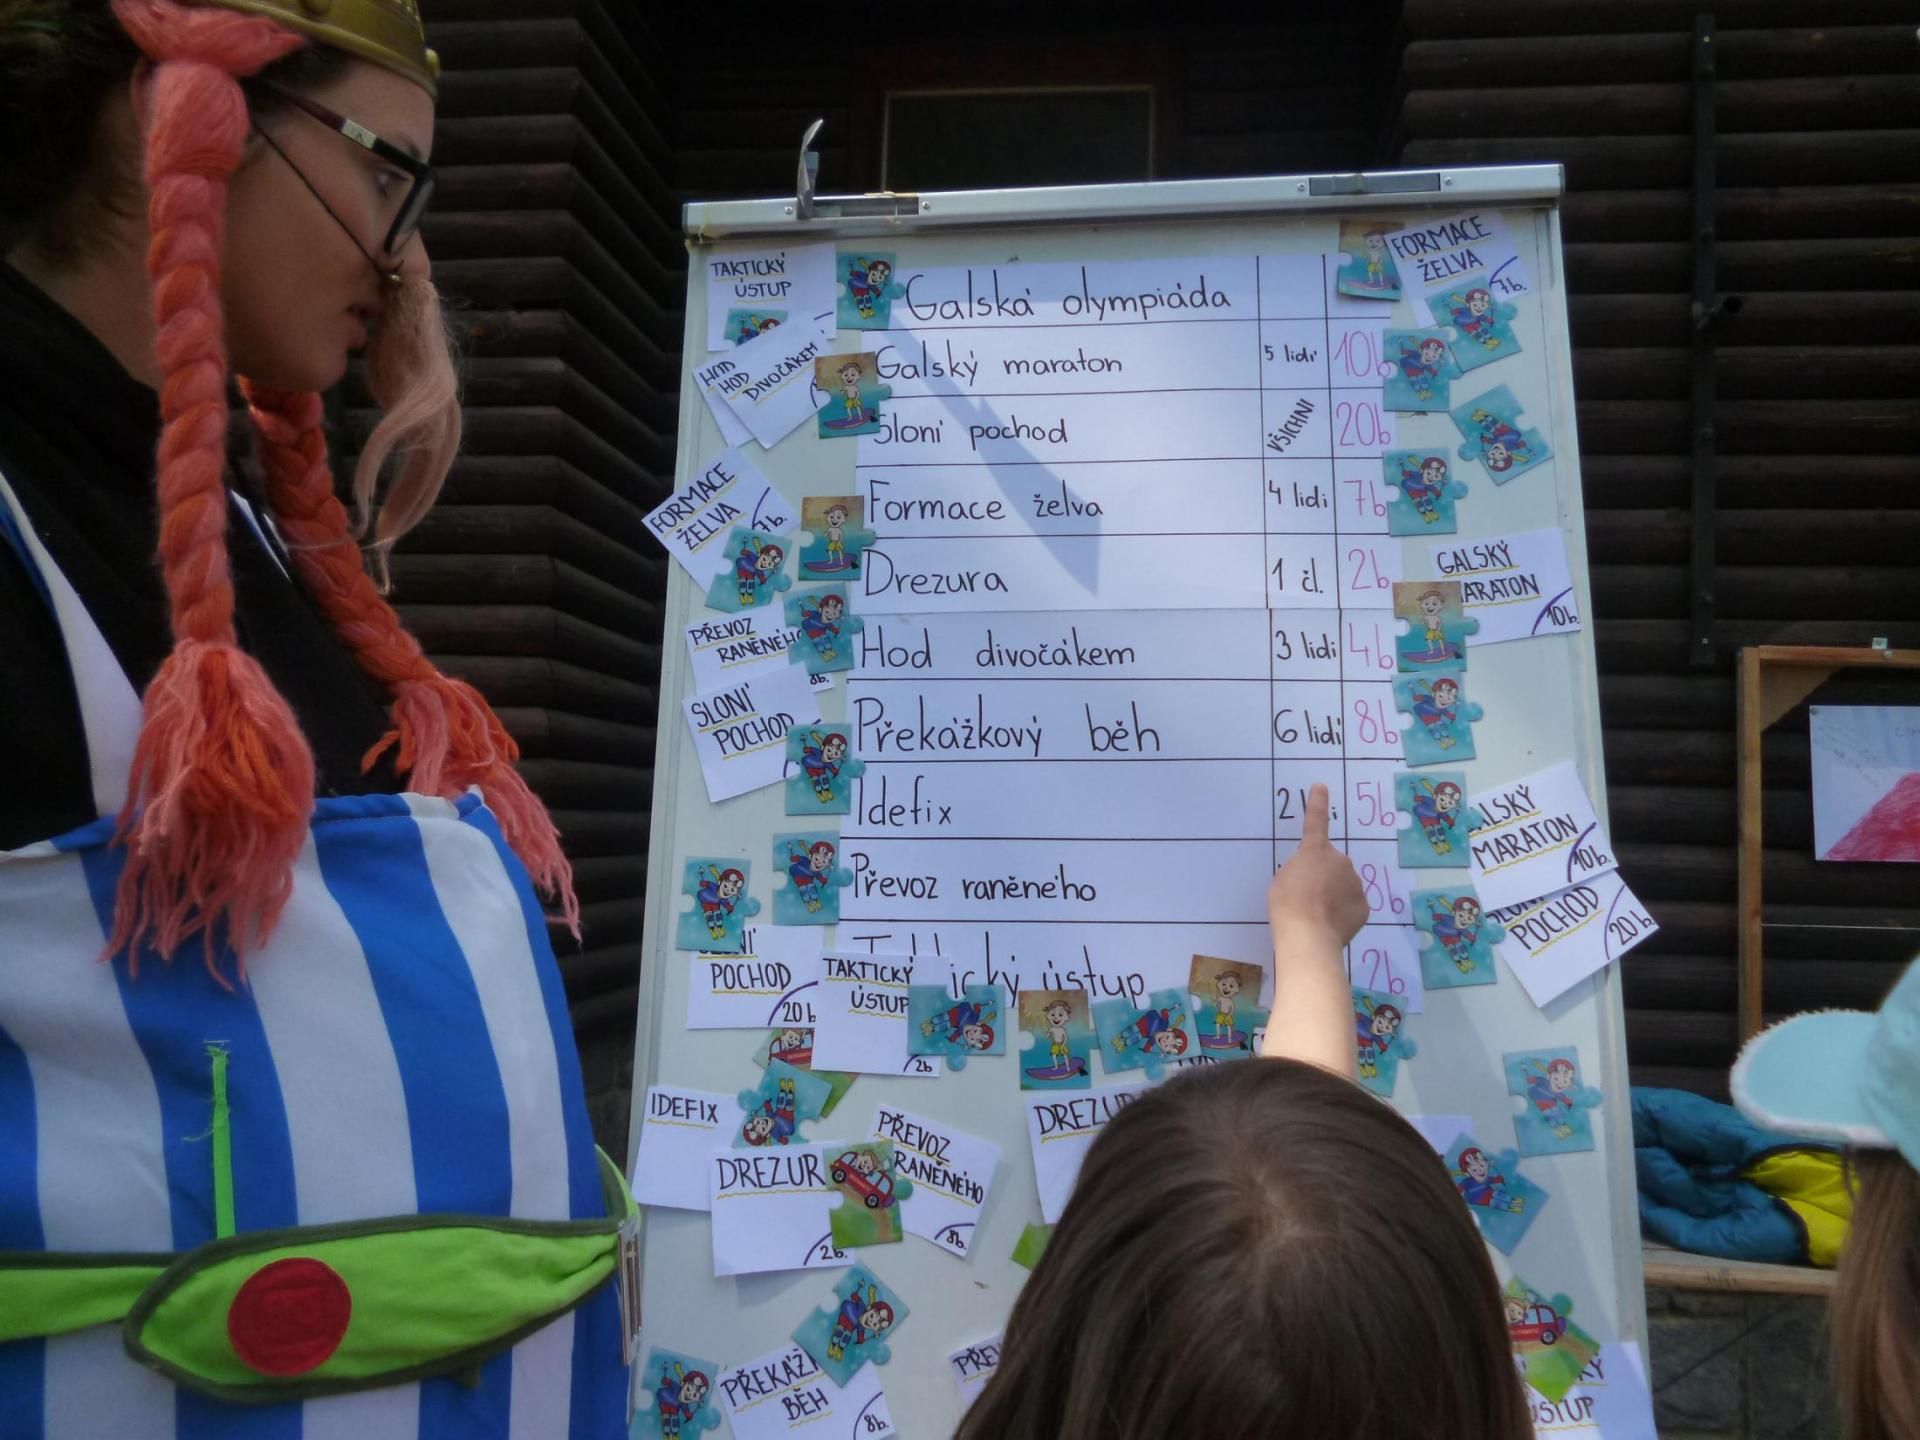 Galská olympiáda
Galský maraton 5 lidí 10b
Sloní pochod VŠICHNI 20b
Formace želva 4 lidi 7b
Drezura 1 čl. 2b
Hod divočákem 3 lidi 4b
Překážkový běh 6 lidí 8b
Idefix 2 5b
Převoz raněného 8b
ústup 2b
TAKTICKÝ
ÚSTUP
HOD
DIVOČÁKEM
FORMACE
ŽELVA
7b.
PŘEVOZ
RANĚNÉHO
8b.
SLONÍ
POCHOD
POCHOD
20b
TAKTICKÝ
ÚSTUP
2b
IDEFIX
DREZUR
2b.
PŘEVOZ
RANĚNÉHO
8b.
DREZUR
BĚH
8b.
FORMACE
ŽELVA
7b.
GALSKÝ
MARATON
10b.
MARATON
10b.
POCHOD
20b.
ÚSTUP